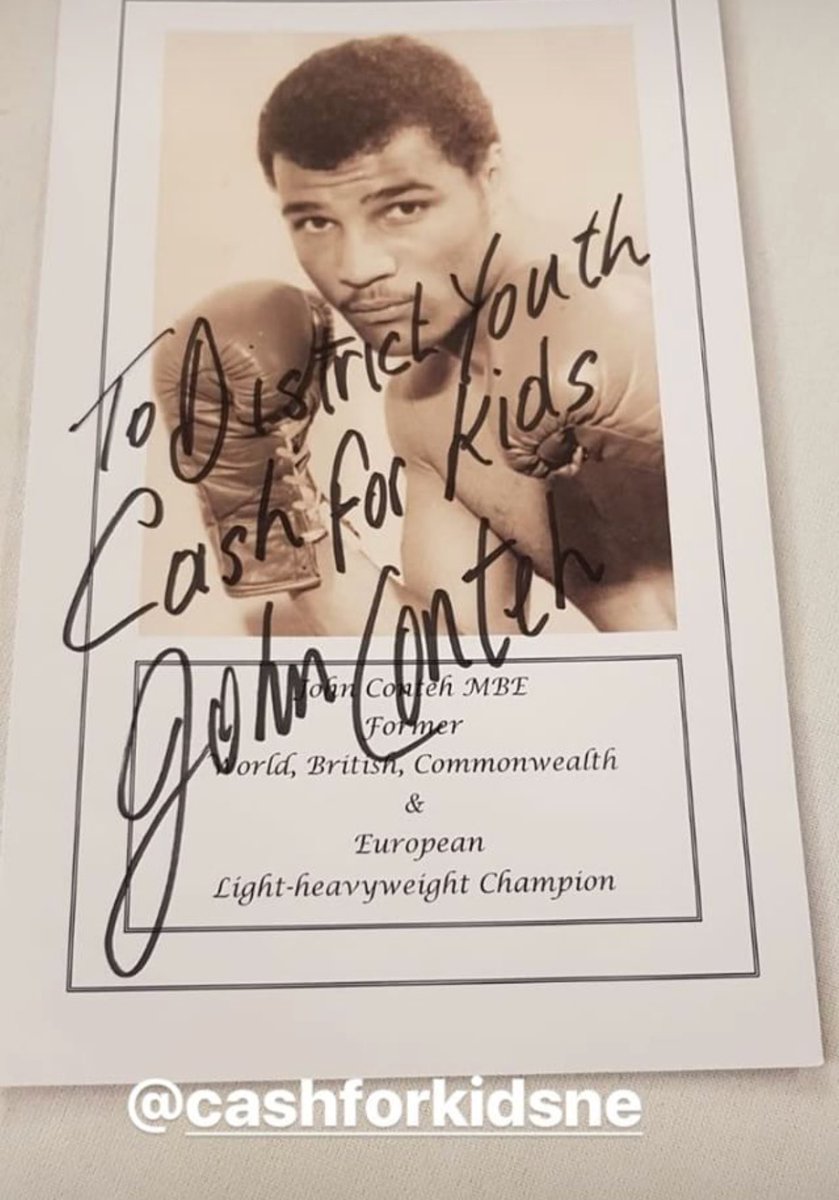 To District Youth
Cash for Kids
John Conteh
John Conteh MBE
Former
World, British, Commonwealth
&
European
Light-heavyweight Champion
@cashforkidsne